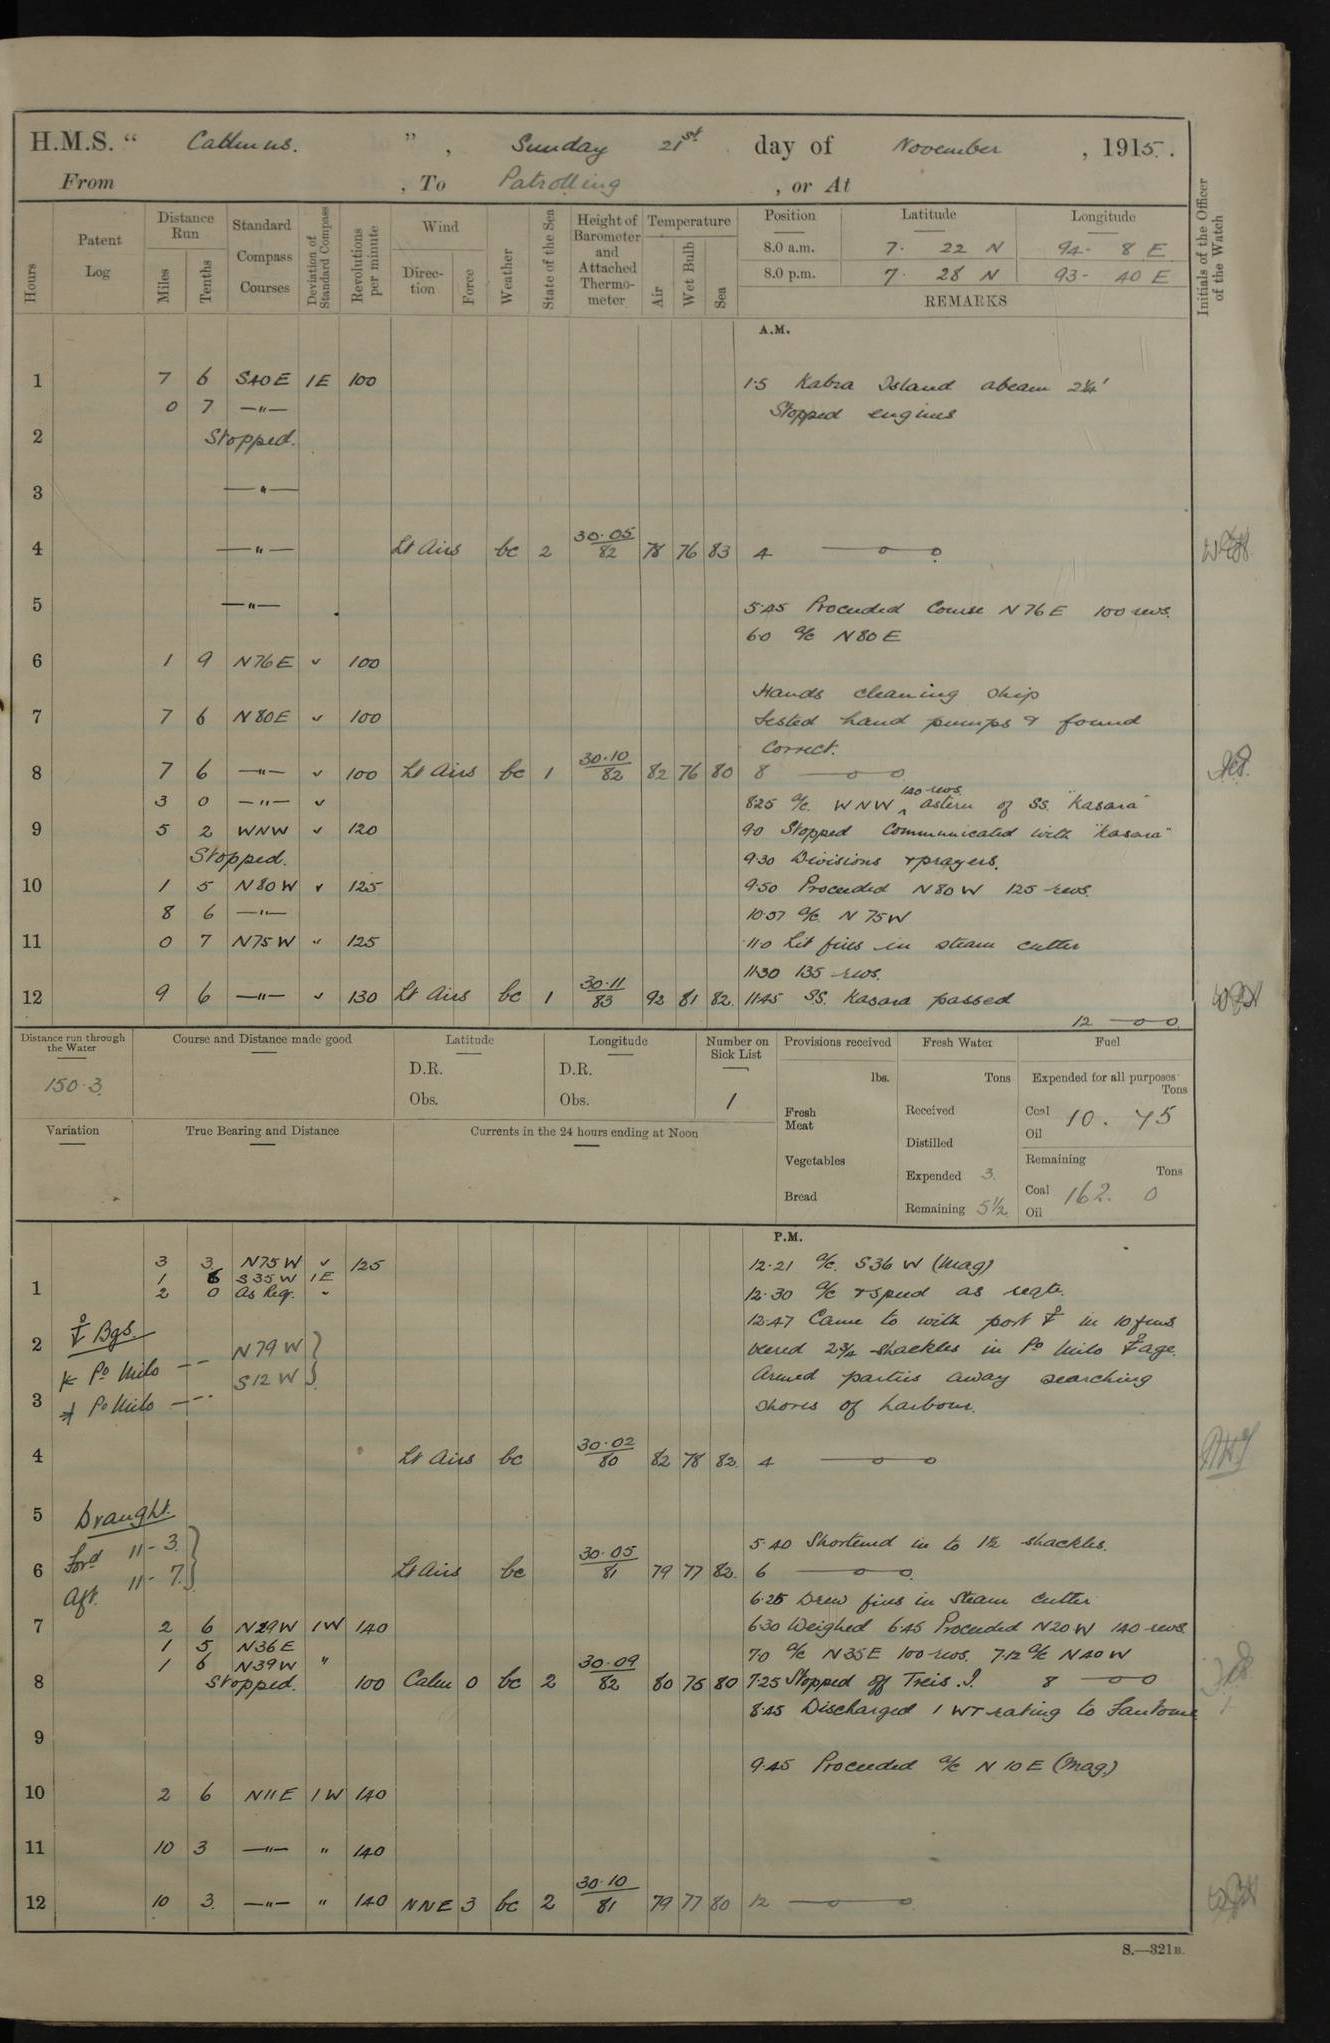 H.M.S. " Cadmus. ", Sunday 21st day of November, 1915.
From , To Patrolling , or At
Hours
Patent Log
Distance Run
Miles
Tenths
Standard Compass Courses
Deviation of Standard Compass
Revolutions per minute
Wind
Direction
Force
Weather
State of the Sea
Height of Barometer and Attached Thermometer
Temperature
Air
Wet Bulb
Sea
Position Latitude Longitude
8.0 a.m. 7. 22 N 94- 8 E
8.0 p.m. 7. 28 N 93- 40 E
REMARKS
Initials of the Officer of the Watch
A.M.
1 7 6 S40E 1E 100 1.5 Kabra Island abeam 2¼'
0 7 —"— Stopped engines
2 Stopped.
3 —"—
4 —"— Lt Airs bc 2 30.05/82 78 76 83 4 —o—o
5 —"— 5.45 Proceeded Course N76E 100 revs.
6.0 a/c N80E
6 1 9 N76E " 100
Hands cleaning ship
7 7 6 N80E " 100 tested hand pumps & found
correct.
8 7 6 —"— " 100 Lt Airs bc 1 30.10/82 82 76 80 8 —o—o
3 0 —"— " 8.25 a/c. WNW 140 revs. astern of SS. "Kasara"
9 5 2 WNW " 120 9.0 Stopped Communicated with "Kasara"
Stopped. 9.30 Divisions & prayers.
10 1 5 N80W " 125 9.50 Proceeded N80W 125 revs.
8 6 —"— 10.57 a/c N75W
11 0 7 N75W " 125 11.0 Lit fires in steam cutter
11.30 135 revs.
12 9 6 —"— " 130 Lt Airs bc 1 30.11/83 92 81 82. 11.45 SS. Kasara passed
12 —o—o
Distance run through the Water
150.3
Course and Distance made good
Latitude
D.R.
Obs.
Longitude
D.R.
Obs.
Number on Sick List
1
Provisions received
lbs.
Fresh Meat
Vegetables
Bread
Fresh Water
Tons
Received
Distilled
Expended 3.
Remaining 51/2
Fuel
Expended for all purposes
Tons
Coal 10. 75
Oil
Remaining
Tons
Coal 162. 0
Oil
Variation
True Bearing and Distance
Currents in the 24 hours ending at Noon
P.M.
3 3 N75W " 125 12.21 a/c. S36W (Mag)
1 6 S35W 1E
1 2 0 As Req. " 12.30 a/c & speed as reqte.
12.47 Came to with port ⚓ in 10 fms
2 ⚓ Bgs. N79W veered 2¾ shackles in Po Milo ⚓age.
Po Milo -- S12W Armed parties away searching
3 Po Milo -- shores of harbour.
4 Lt Airs bc 30.02/80 82 78 82. 4 —o—o
5 Draught.
Ford 11-3. 5.40 Shortened in to 1½ shackles.
6 Aft. 11-7. Lt Airs bc 30.05/81 79 77 82. 6 —o—o
6.25 Drew fires in Steam Cutter
7 2 6 N29W 1W 140 6.30 Weighed 6.45 Proceeded N20W 140 revs.
1 5 N36E 7.0 a/c N35E 100 revs. 7.12 a/c N40W
1 6 N39W "
8 Stopped. 100 Calm 0 bc 2 30.09/82 80 75 80 7.25 Stopped off Treis I. 8 —o—o
8.45 Discharged 1 WT rating to Fantome
9
9.45 Proceeded a/c N10E (Mag.)
10 2 6 N11E 1W 140
11 10 3 —"— " 140
12 10 3. —"— " 140 NNE 3 bc 2 30.10/81 79 77 80 12 —o—o
S.—321B.